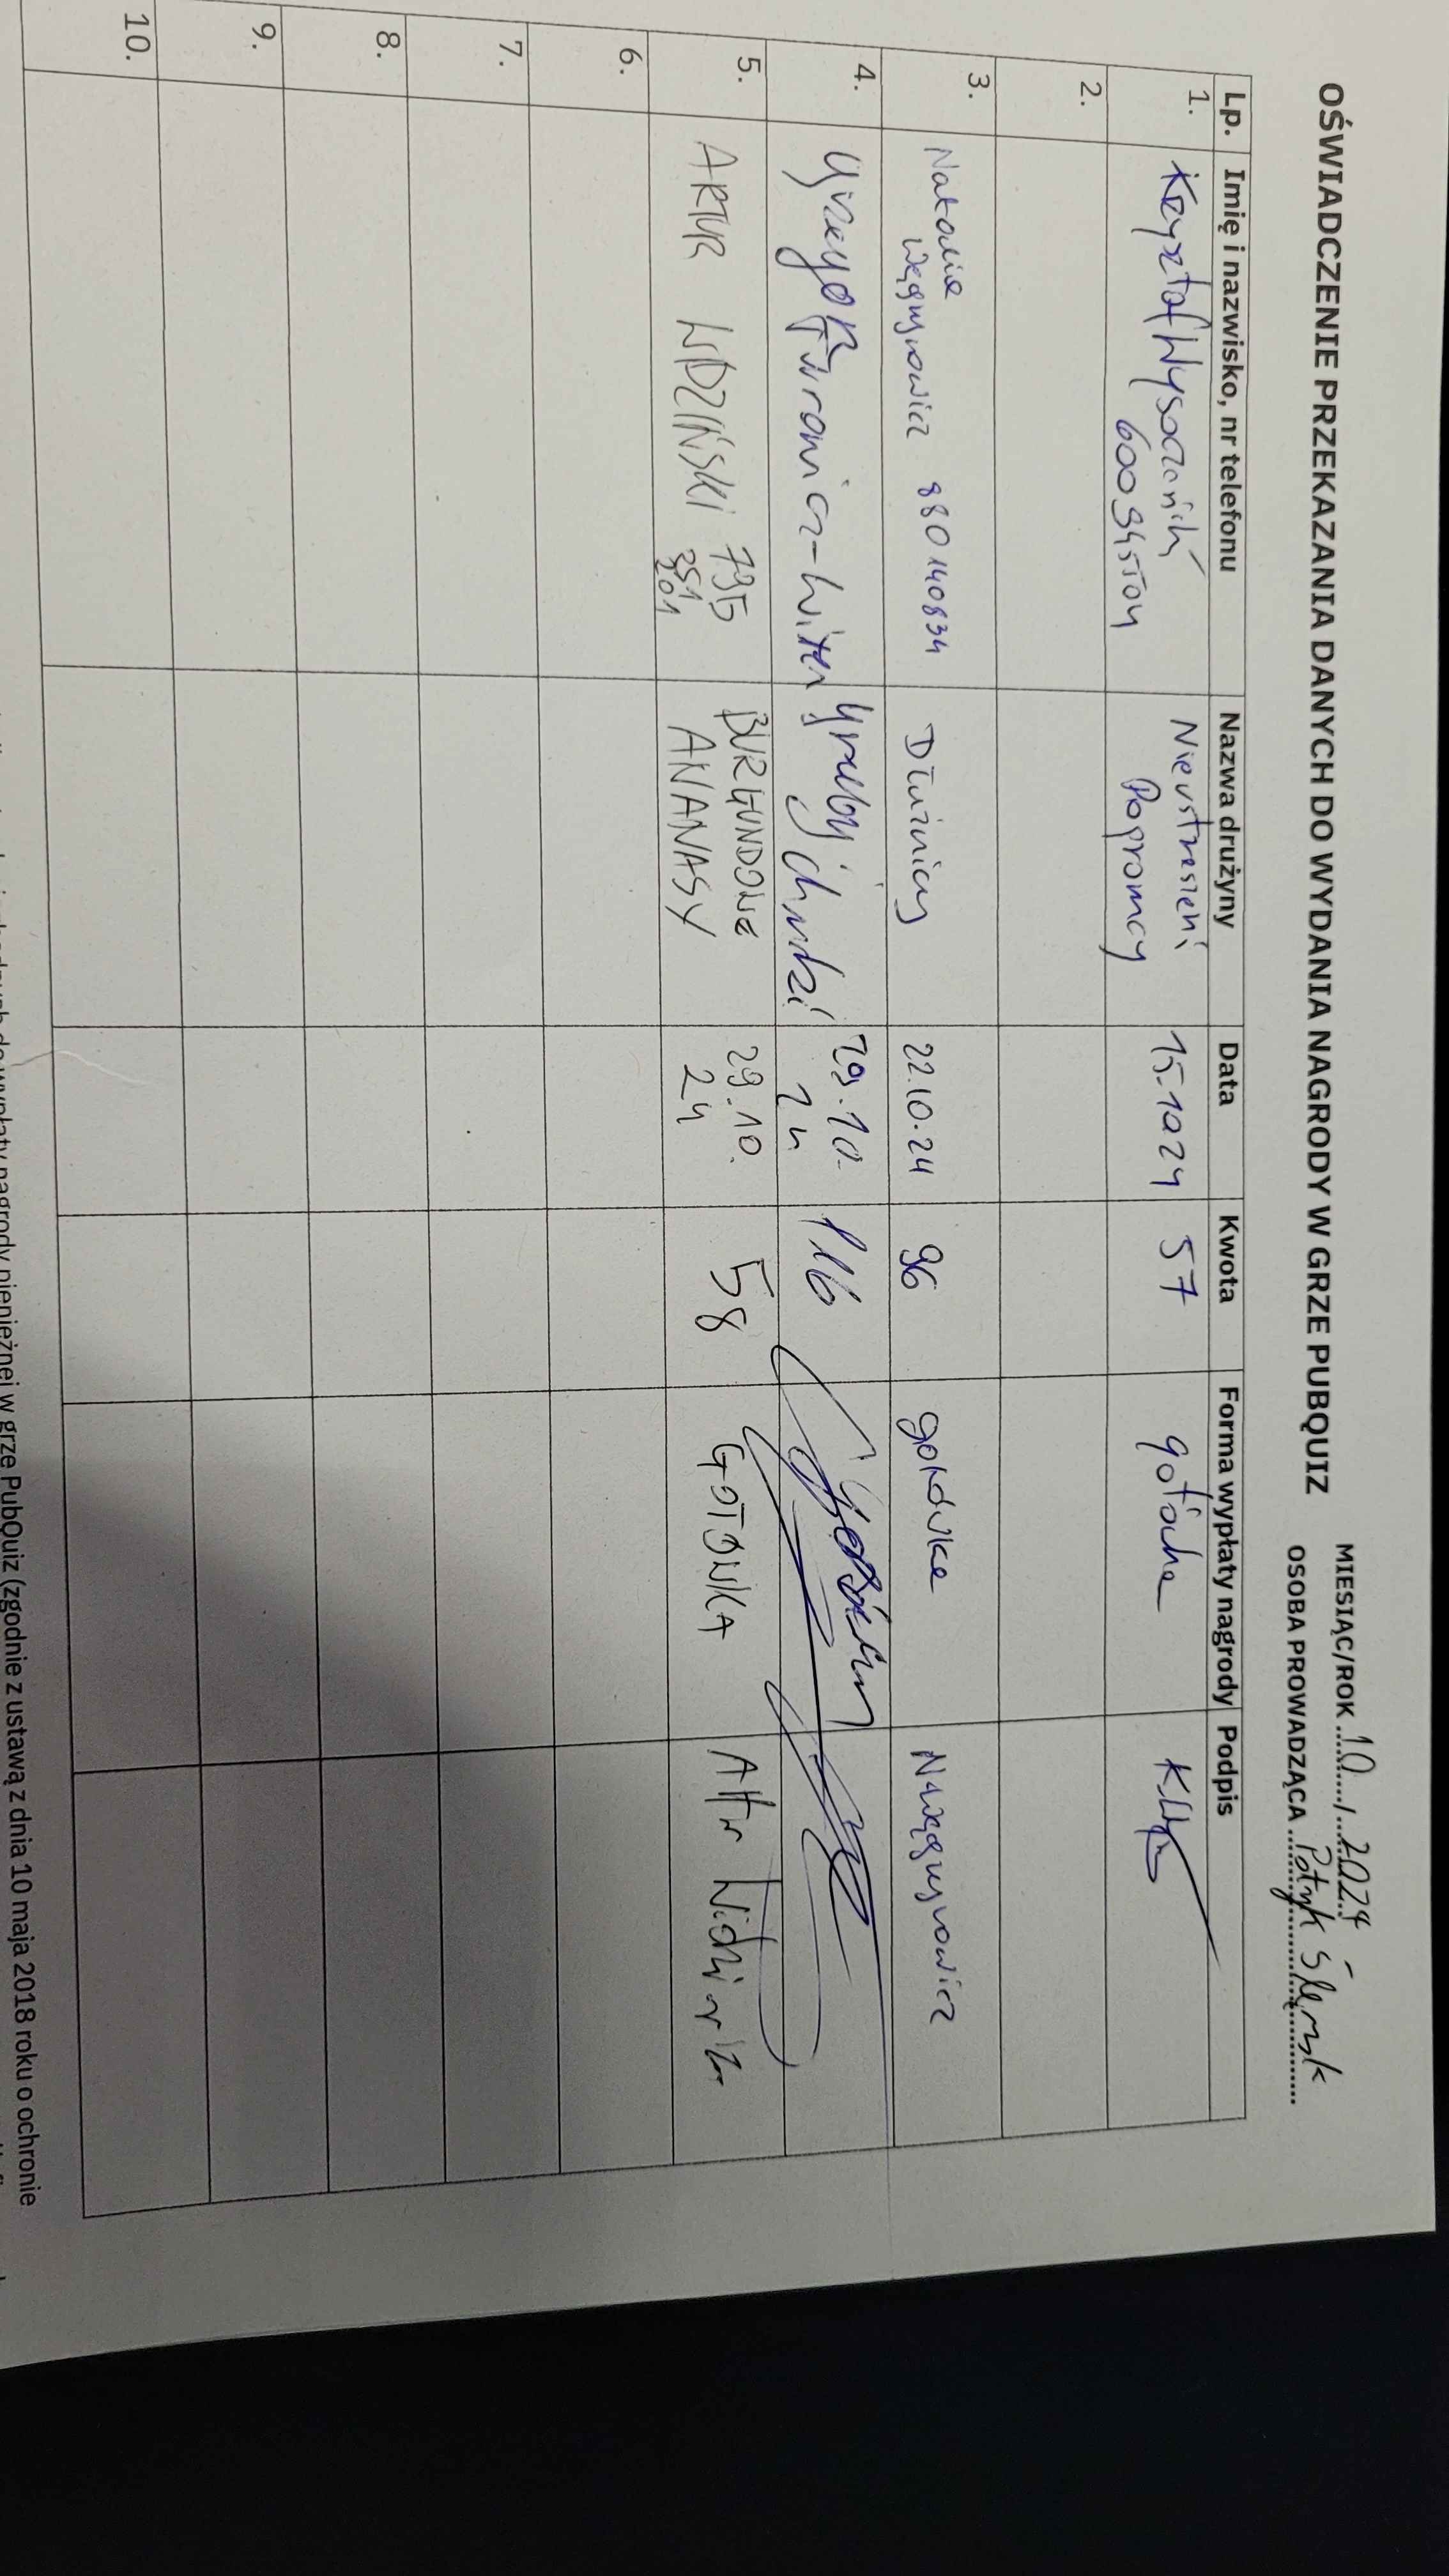 OŚWIADCZENIE PRZEKAZANIA DANYCH DO WYDANIA NAGRODY W GRZE PUBQUIZ
MIESIĄC/ROK ....10..../....2024
OSOBA PROWADZĄCA ....Patryk Ślęzyk....
Lp. Imię i nazwisko, nr telefonu Nazwa drużyny Data Kwota Forma wypłaty nagrody Podpis
1. Krzysztof Wysoczański Nieustraszeni 15.10 24 57 gotówka
Pogromcy
2.
3. Natalia Dłużnicy 22.10.24 96 gotówka N.Węgrynowicz
Węgrynowicz 880 140 834
4. Grzegorz 29.10. 116 Gotówka
24
5. ARTUR WDZIŃSKI 795 BURGUNDOWE 29.10. 58 GOTÓWKA
351 ANANASY 24
201
6.
7.
8.
9.
10.
nagrody pieniężnej w grze PubQuiz (zgodnie z ustawą z dnia 10 maja 2018 roku o ochronie